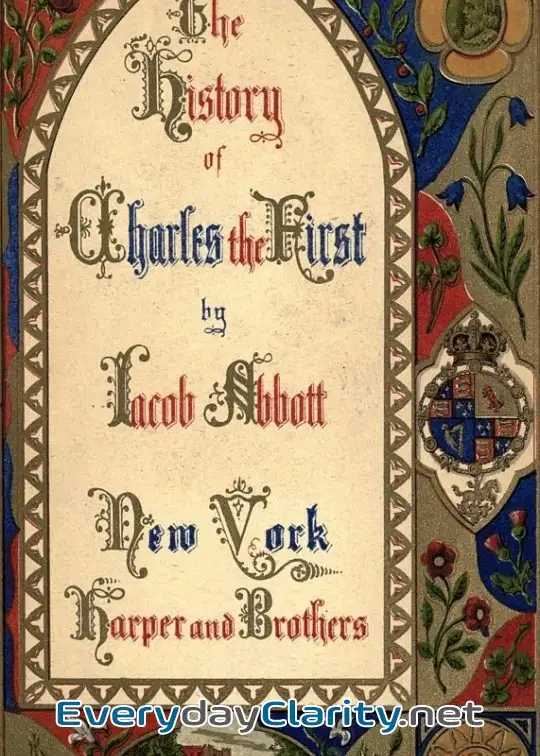 The
History
of
Charles the First
by
Jacob Abbott
New York
Harper and Brothers
EverydayClarity.net